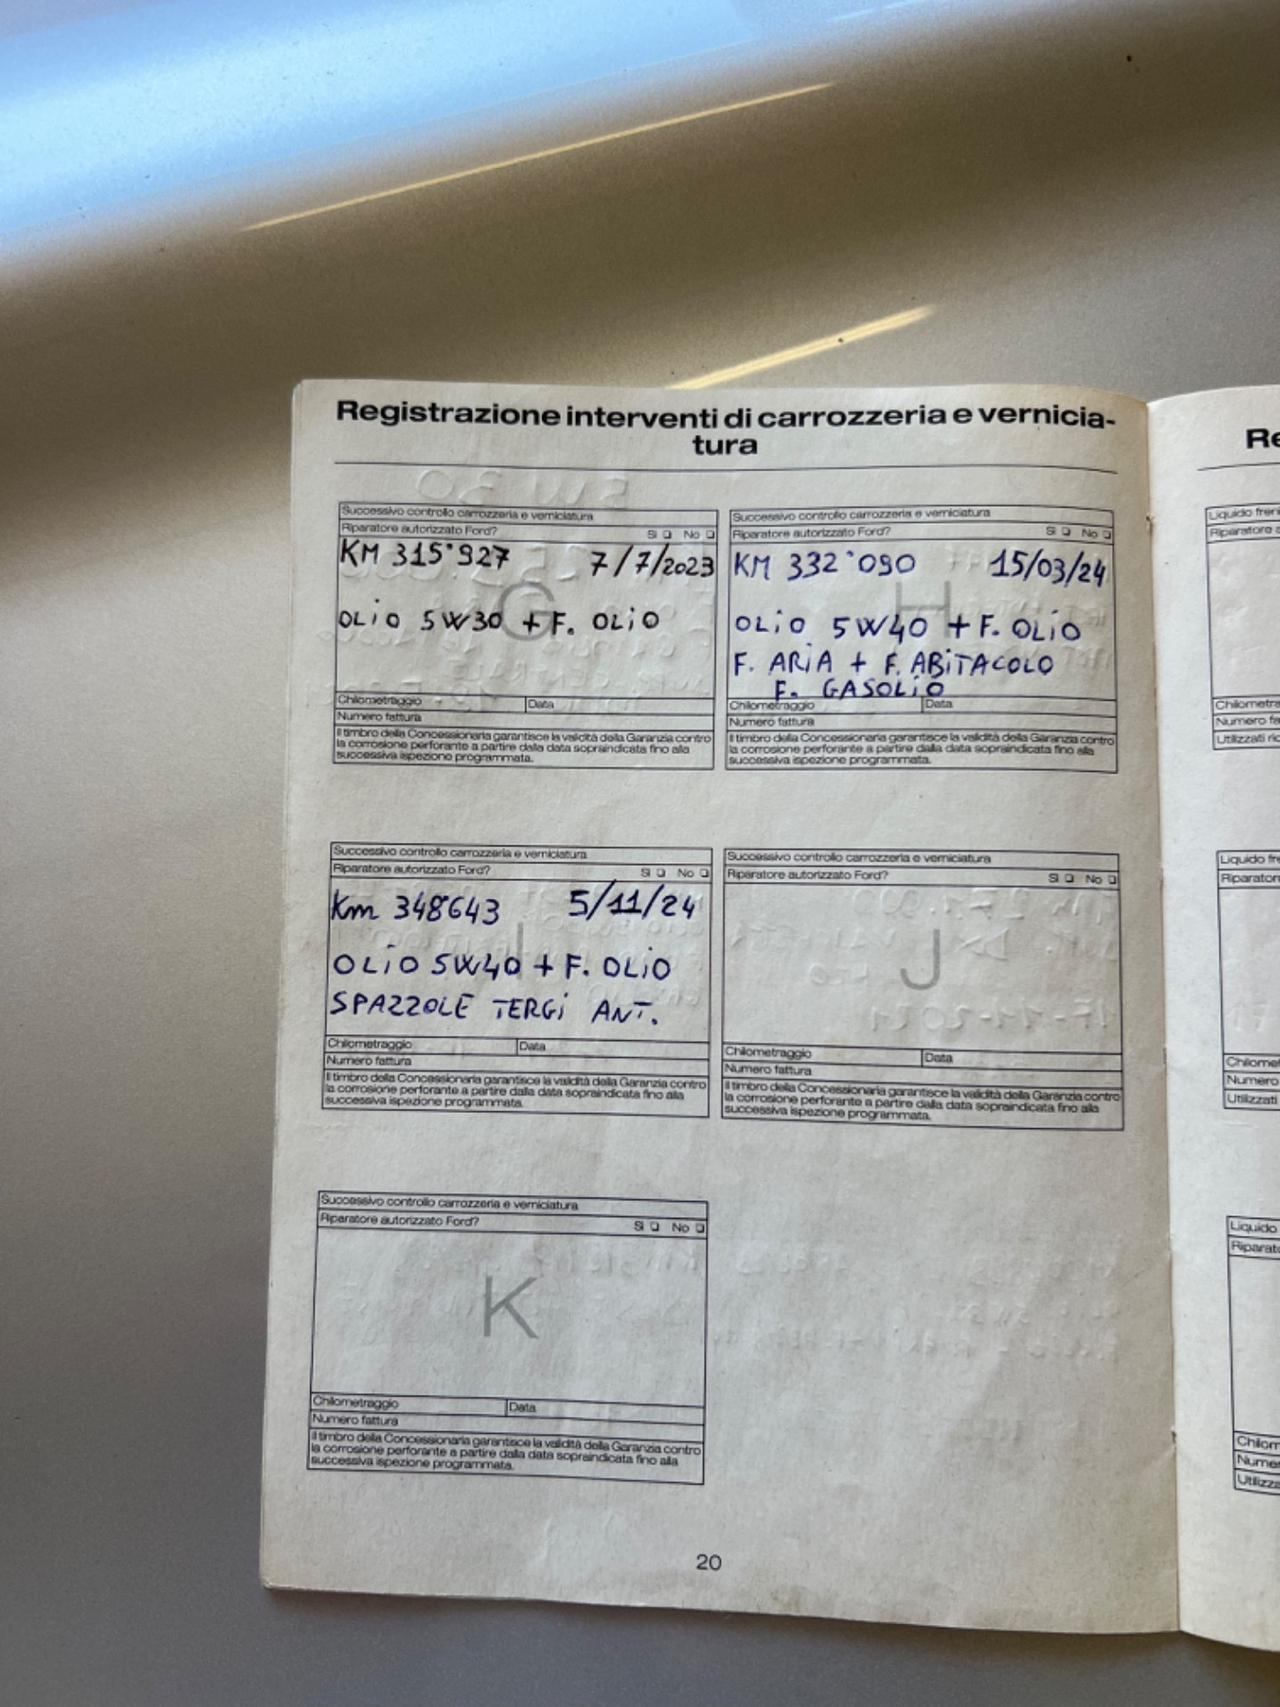 Registrazione interventi di carrozzeria e vernicia-
tura
Successivo controllo carrozzeria e verniciatura
Riparatore autorizzato Ford? Sì No
KM 315'927 7/7/2023
OLIO 5W30 + F. OLIO
G
Chilometraggio Data
Numero fattura
Il timbro della Concessionaria garantisce la validità della Garanzia contro
la corrosione perforante a partire dalla data sopraindicata fino alla
successiva ispezione programmata.
Successivo controllo carrozzeria e verniciatura
Riparatore autorizzato Ford? Sì No
KM 332'090 15/03/24
H
OLIO 5W40 + F. OLIO
F. ARIA + F. ABITACOLO
F. GASOLIO
Chilometraggio Data
Numero fattura
Il timbro della Concessionaria garantisce la validità della Garanzia contro
la corrosione perforante a partire dalla data sopraindicata fino alla
successiva ispezione programmata.
Successivo controllo carrozzeria e verniciatura
Riparatore autorizzato Ford? Sì No
Km 348643 5/11/24
I
OLIO 5W40 + F. OLIO
SPAZZOLE TERGI ANT.
Chilometraggio Data
Numero fattura
Il timbro della Concessionaria garantisce la validità della Garanzia contro
la corrosione perforante a partire dalla data sopraindicata fino alla
successiva ispezione programmata.
Successivo controllo carrozzeria e verniciatura
Riparatore autorizzato Ford? Sì No
J
Chilometraggio Data
Numero fattura
Il timbro della Concessionaria garantisce la validità della Garanzia contro
la corrosione perforante a partire dalla data sopraindicata fino alla
successiva ispezione programmata.
Successivo controllo carrozzeria e verniciatura
Riparatore autorizzato Ford? Sì No
K
Chilometraggio Data
Numero fattura
Il timbro della Concessionaria garantisce la validità della Garanzia contro
la corrosione perforante a partire dalla data sopraindicata fino alla
successiva ispezione programmata.
20
Liquido
Riparatore
Numero
Utilizzati
Liquido
Numero
Utilizzati
Liquido